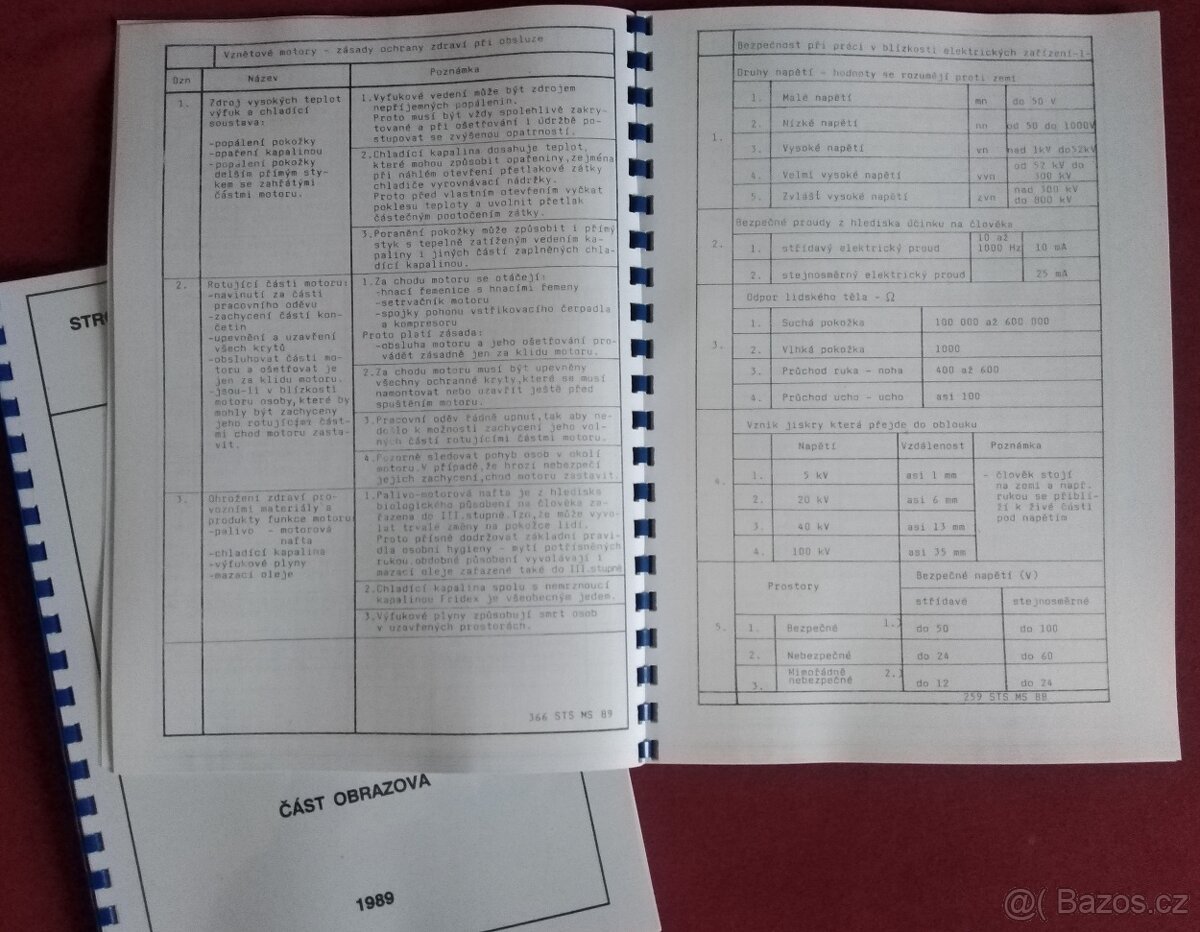 Vznětové motory - zásady ochrany zdraví při obsluze
Ozn
Název
Poznámka
1.
Zdroj vysokých teplot
výfuk a chladící
soustava:
-popálení pokožky
-opaření kapalinou
-popálení pokožky
delším přímým sty-
kem se zahřátými
částmi motoru.
1.Výfukové vedení může být zdrojem
nepříjemných popálenin.
Proto musí být vždy spolehlivě zakry-
tované a při ošetřování i údržbě po-
stupovat se zvýšenou opatrností.
2.Chladící kapalina dosahuje teplot,
které mohou způsobit opařeniny,zejména
při náhlém otevření přetlakové zátky
chladiče vyrovnávací nádržky.
Proto před vlastním otevřením vyčkat
poklesu teploty a uvolnit přetlak
částečným pootočením zátky.
3.Poranění pokožky může způsobit i přímý
styk s tepelně zatíženým vedením ka-
paliny i jiných částí zaplněných chla-
dící kapalinou.
2.
Rotující části motoru:
-navinutí za části
pracovního oděvu
-zachycení částí kon-
četin
-upevnění a uzavření
všech krytů
-obsluhovat části mo-
toru a ošetřovat je
jen za klidu motoru.
-jsou-li v blízkosti
motoru osoby,které by
mohly být zachyceny
jeho rotujícími část-
mi chod motoru zasta-
vit.
1.Za chodu motoru se otáčejí:
-hnací řemenice s hnacími řemeny
-setrvačník motoru
-spojky pohonu vstřikovacího čerpadla
a kompresoru
Proto platí zásada:
-obsluha motoru a jeho ošetřování pro-
vádět zásadně jen za klidu motoru.
2.Za chodu motoru musí být upevněny
všechny ochranné kryty,které se musí
namontovat nebo uzavřít ještě před
spuštěním motoru.
3.Pracovní oděv řádně upnut,tak aby ne-
došlo k možnosti zachycení jeho vol-
ných částí rotujícími částmi motoru.
4.Pozorně sledovat pohyb osob v okolí
motoru.V případě,že hrozí nebezpečí
jejich zachycení,chod motoru zastavit.
3.
Ohrožení zdraví pro-
vozními materiály a
produkty funkce motoru
-palivo - motorová
nafta
-chladící kapalina
-výfukové plyny
-mazací oleje
1.Palivo-motorová nafta je z hlediska
biologického působení na člověka za-
řazena do III.stupně.Tzn,že může vyvo-
lat trvalé změny na pokožce lidí.
Proto přísně dodržovat základní pravi-
dla osobní hygieny - mytí potřísněných
rukou.obdobné působení vyvolávají i
mazací oleje zařazené také do III.stupně
2.Chladící kapalina spolu s nemrznoucí
kapalinou Fridex je všeobecným jedem.
3.Výfukové plyny způsobují smrt osob
v uzavřených prostorách.
366 STS MS 89
Bezpečnost při práci v blízkosti elektrických zařízení-1-
Druhy napětí - hodnoty se rozumějí proti zemi
1.
1. Malé napětí mn do 50 V
2. Nízké napětí nn od 50 do 1000V
3. Vysoké napětí vn nad 1kV do52kV
4. Velmi vysoké napětí vvn od 52 kV do
300 kV
5. Zvlášť vysoké napětí zvn nad 300 kV
do 800 kV
Bezpečné proudy z hlediska účinku na člověka
2.
1. střídavý elektrický proud 10 až
1000 Hz 10 mA
2. stejnosměrný elektrický proud 25 mA
Odpor lidského těla - Ω
3.
1. Suchá pokožka 100 000 až 600 000
2. Vlhká pokožka 1000
3. Průchod ruka - noha 400 až 600
4. Průchod ucho - ucho asi 100
Vznik jiskry která přejde do oblouku
4.
Napětí Vzdálenost Poznámka
1. 5 kV asi 1 mm
2. 20 kV asi 6 mm
3. 40 kV asi 13 mm
4. 100 kV asi 35 mm
- člověk stojí
na zemi a např.
rukou se přiblí-
ží k živé části
pod napětím
5.
Prostory Bezpečné napětí (V)
střídavé stejnosměrné
1. Bezpečné 1.) do 50 do 100
2. Nebezpečné do 24 do 60
3. Mimořádně
nebezpečné 2.) do 12 do 24
259 STS MS 88
STRO
ČÁST OBRAZOVÁ
1989
@( Bazos.cz